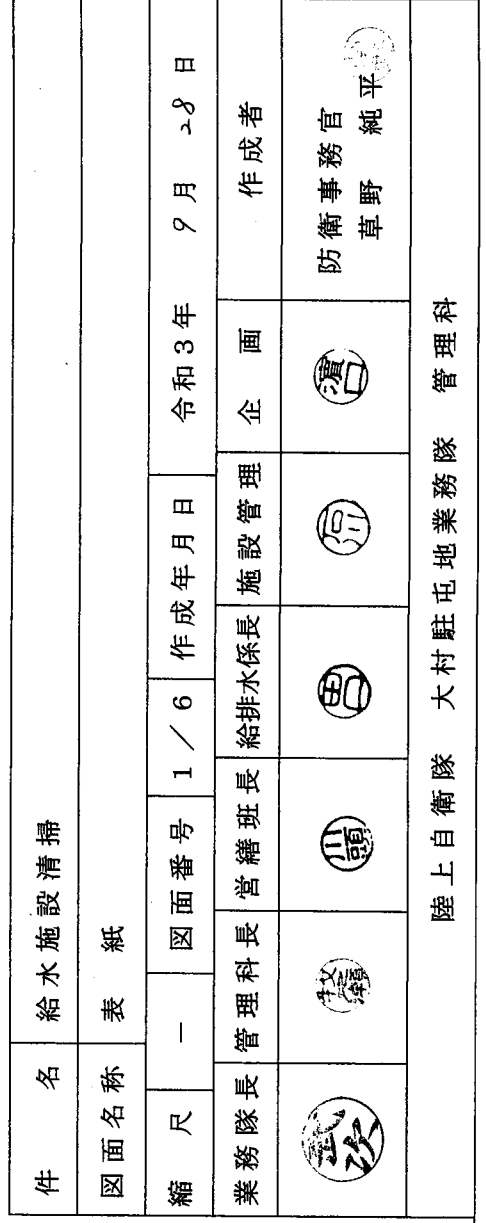 件名 給水施設清掃
図面名称 表紙
縮尺 － 図面番号 1／6 作成年月日 令和3年 9月 28日
業務隊長 管理科長 営繕班長 給排水係長 施設管理 企画 作成者
濵口
防衛事務官
草野 純平
陸上自衛隊 大村駐屯地業務隊 管理科